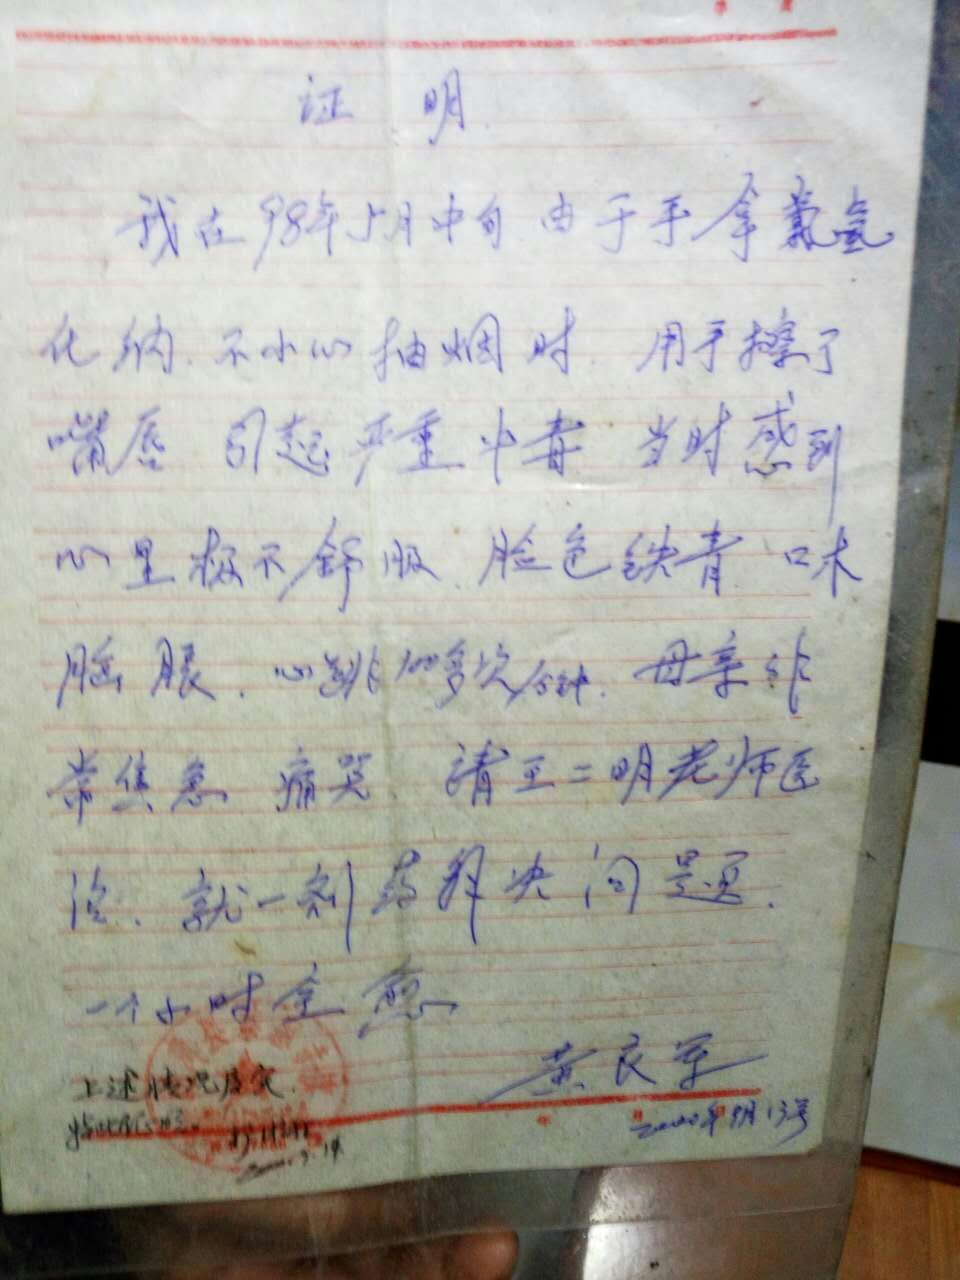 证 明
我在98年5月中旬.由于手拿氰氢
化纳.不小心抽烟时.用手擦了
嘴唇 引起严重中毒 当时感到
心里极不舒服.脸色铁青 口木
眼.心跳100多次/分钟.母亲非
常焦急 痛哭.请王二明老师医
治.就一剂药解决问题.
一个小时全愈
黄良军
上述情况属实.
2000年9月13号